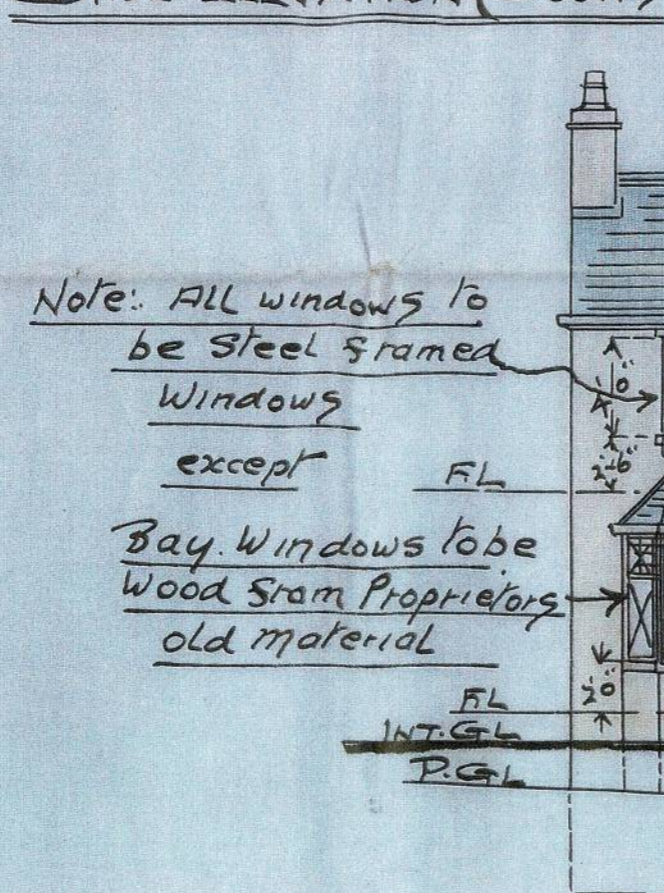 ELEVATION
Note:. All windows to
be Steel framed
Windows
except
Bay. Windows to be
Wood from Proprietors
old material
4'-0"
2'-6"
F.L
2'-0"
F.L
INT.G.L
P.G.L